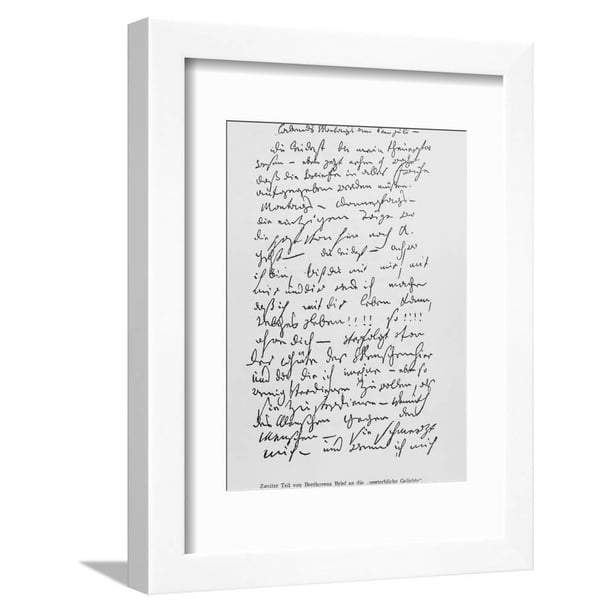 Abends Montags am 6ten juli –
du leidest du mein theuerstes
wesen – eben jezt nehme ich wahr
daß die Briefe in aller Frühe
aufgegeben werden müßen.
Montags – Donnerstags –
die einzigen Täge wo
die Post von hier nach K.
geht – du leidest – ach, wo
ich bin, bist du mit mir, mit
mir und dir ich mache
daß ich mit dir leben kann,
welches Leben!!!! so!!!!
ohne dich – verfolgt von
der Güte der Menschen hier
und da, die ich meyne – eben so
wenig verdienen zu wollen, als
sie zu verdienen – Demuth
des Menschen gegen den
Menschen – sie schmerzt
mich – und wenn ich mich
Zweiter Teil von Beethovens Brief an die „unsterbliche Geliebte".